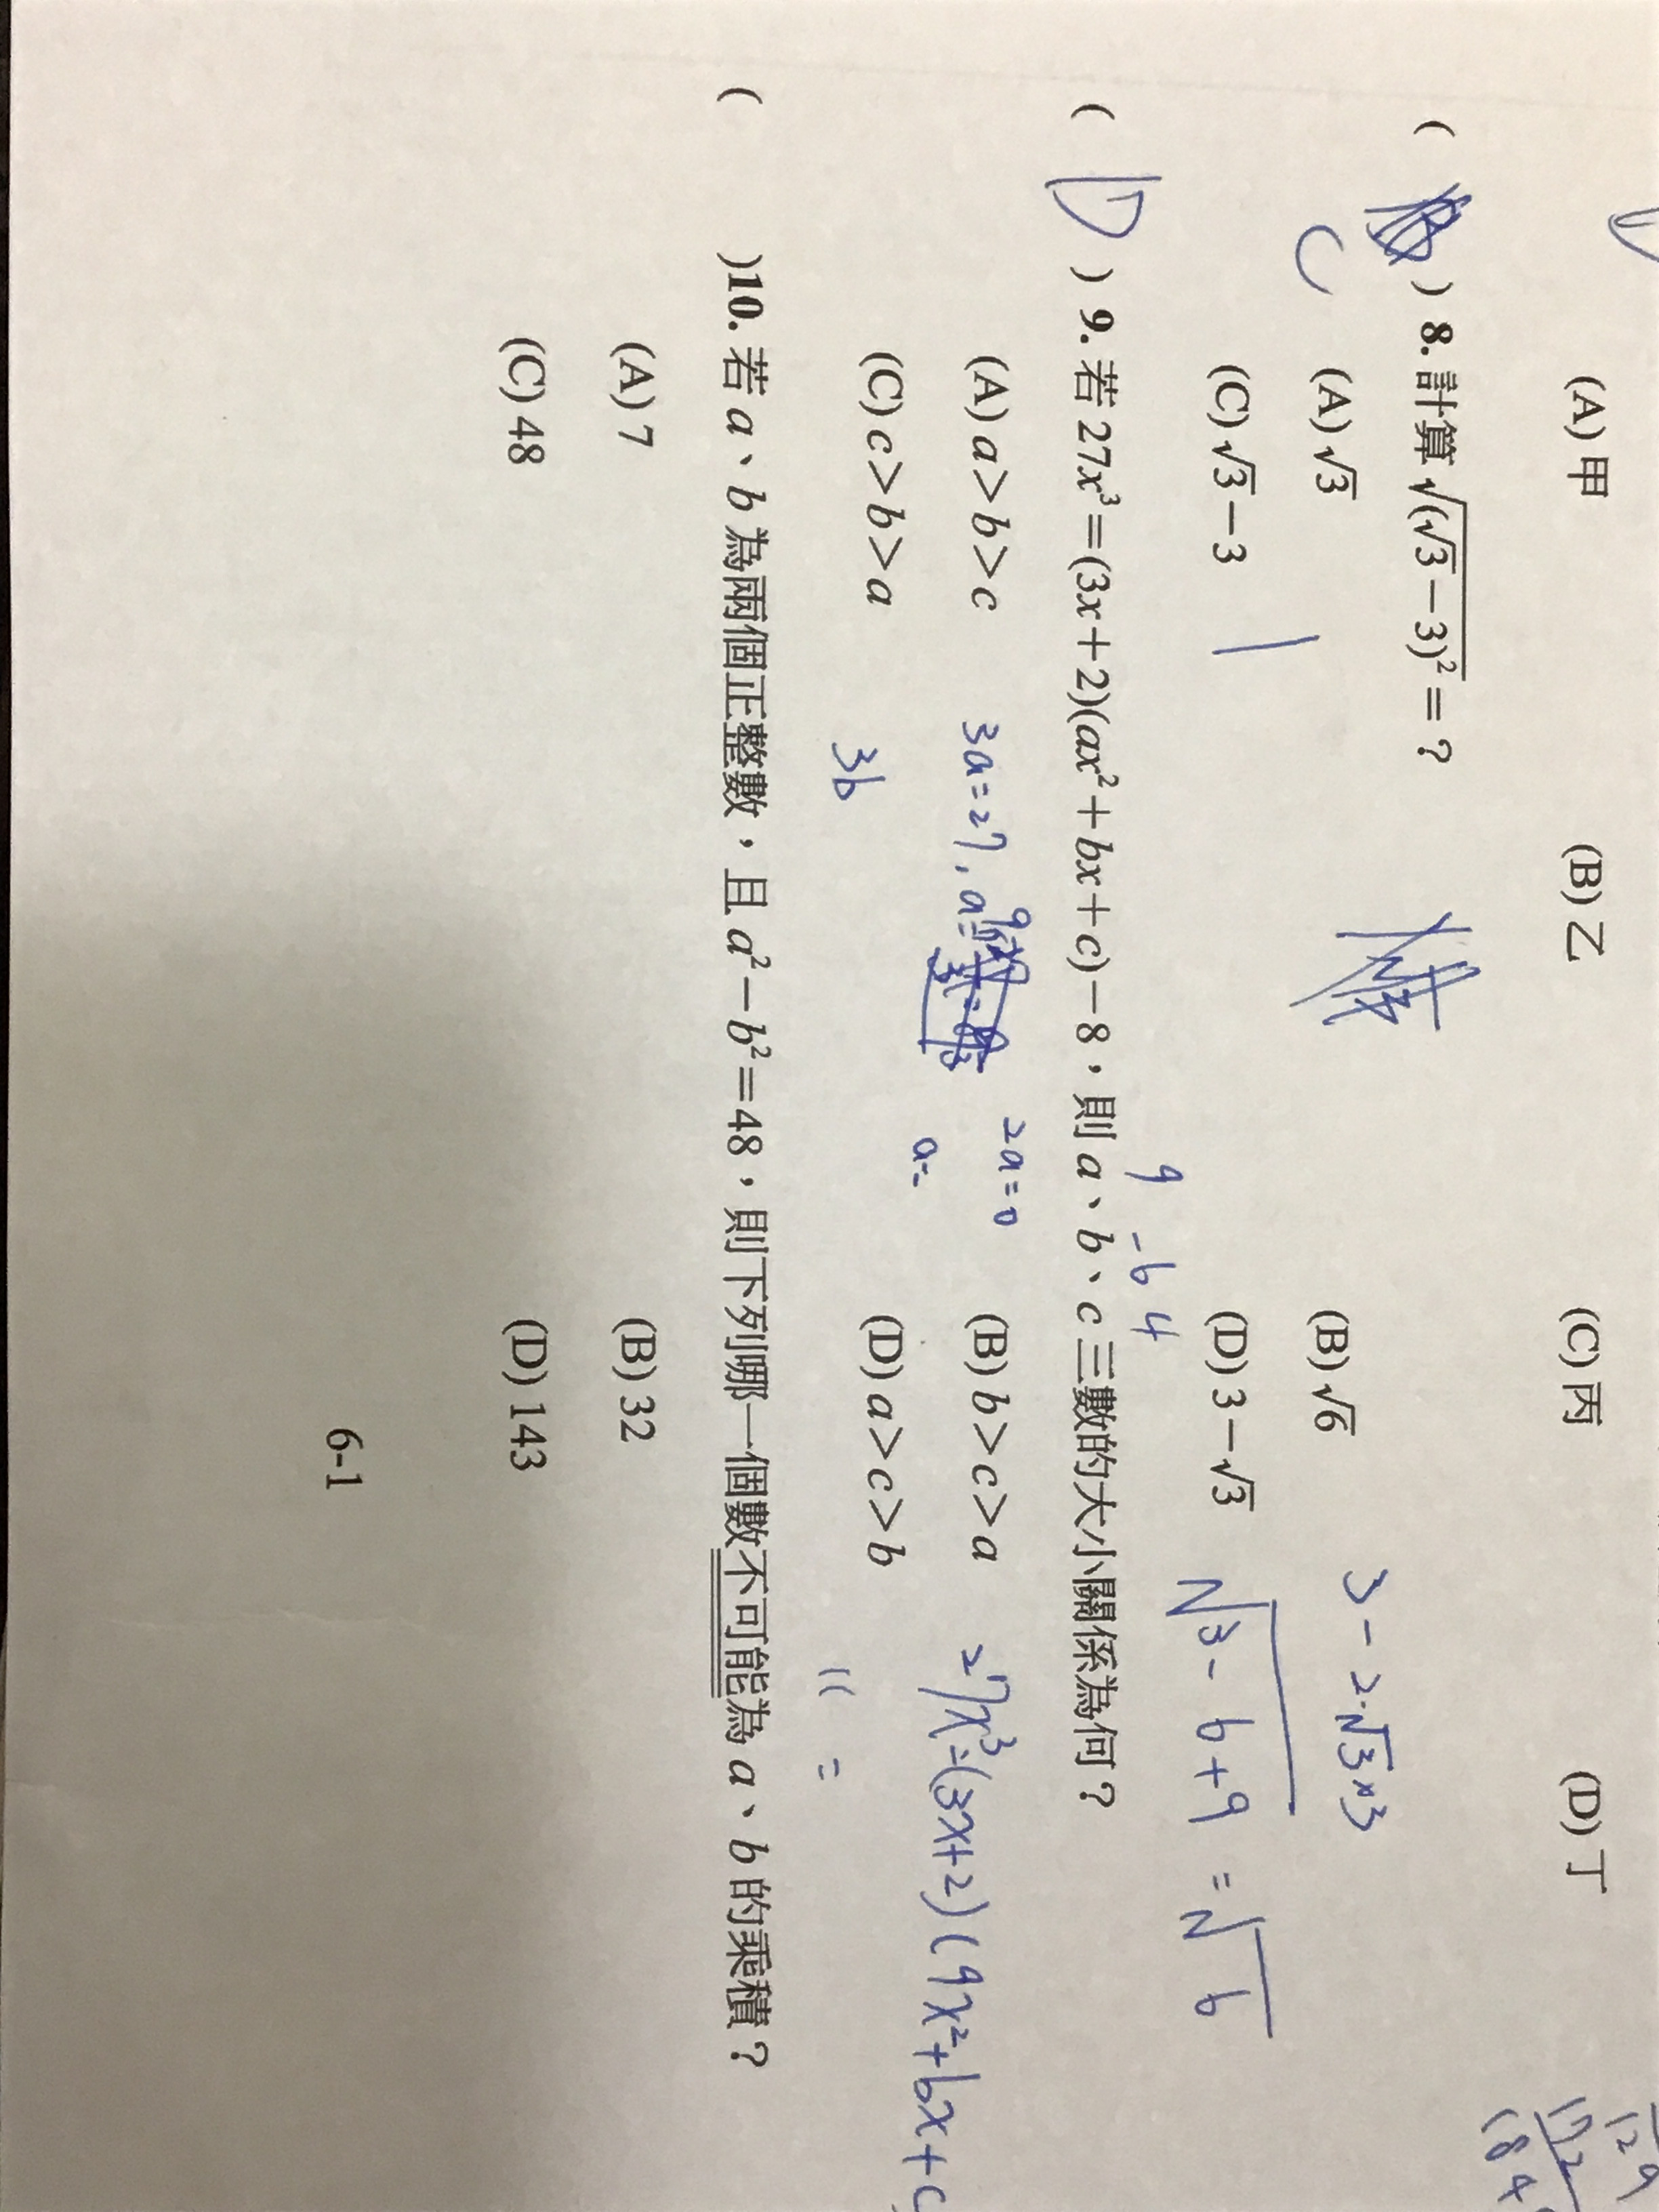 (A) 甲 (B) 乙 (C) 丙 (D) 丁
( ) 8. 計算 √(√3−3)² = ?
C
(A) √3 (B) √6 3 − 2·√3×3
(C) √3−3 (D) 3−√3 √3 − 6 + 9 = √6
9 -6 4
( D ) 9. 若 27x³=(3x+2)(ax²+bx+c)−8,則 a、b、c 三數的大小關係為何?
(A) a>b>c 3a=27, a=9 2a=0 (B) b>c>a 27x³=(3x+2)(9x²+bx+c
a=
(C) c>b>a 3b (D) a>c>b
( )10. 若 a、b 為兩個正整數,且 a²−b²=48,則下列哪一個數不可能為 a、b 的乘積?
(A) 7 (B) 32
(C) 48 (D) 143
6-1